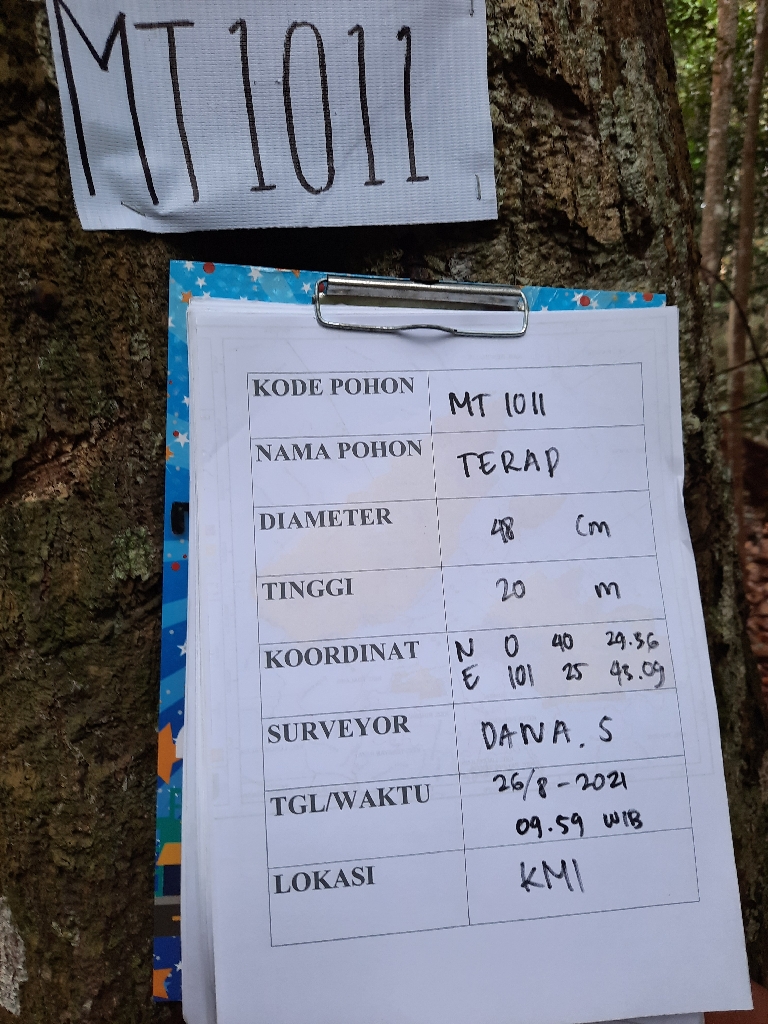 MT 1011
KODE POHON MT 1011
NAMA POHON TERAP
DIAMETER 48 Cm
TINGGI 20 m
KOORDINAT N 0 40 29.36
E 101 25 43.09
SURVEYOR DANA. S
TGL/WAKTU 26/8-2021
09.59 WIB
LOKASI KMI